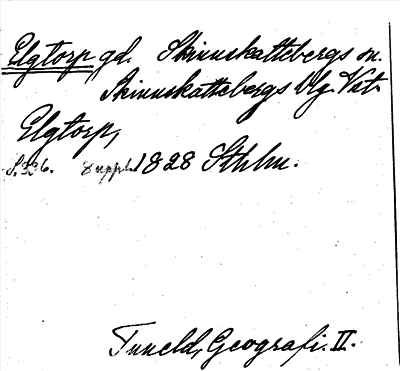 Elgtorp gd. Skinnskattebergs sn.
Skinnskattebergs blg. Vstm.
Elgtorp,
S. 236. Suppl. 1828 Sthlm.
Tuneld, Geografi. II.